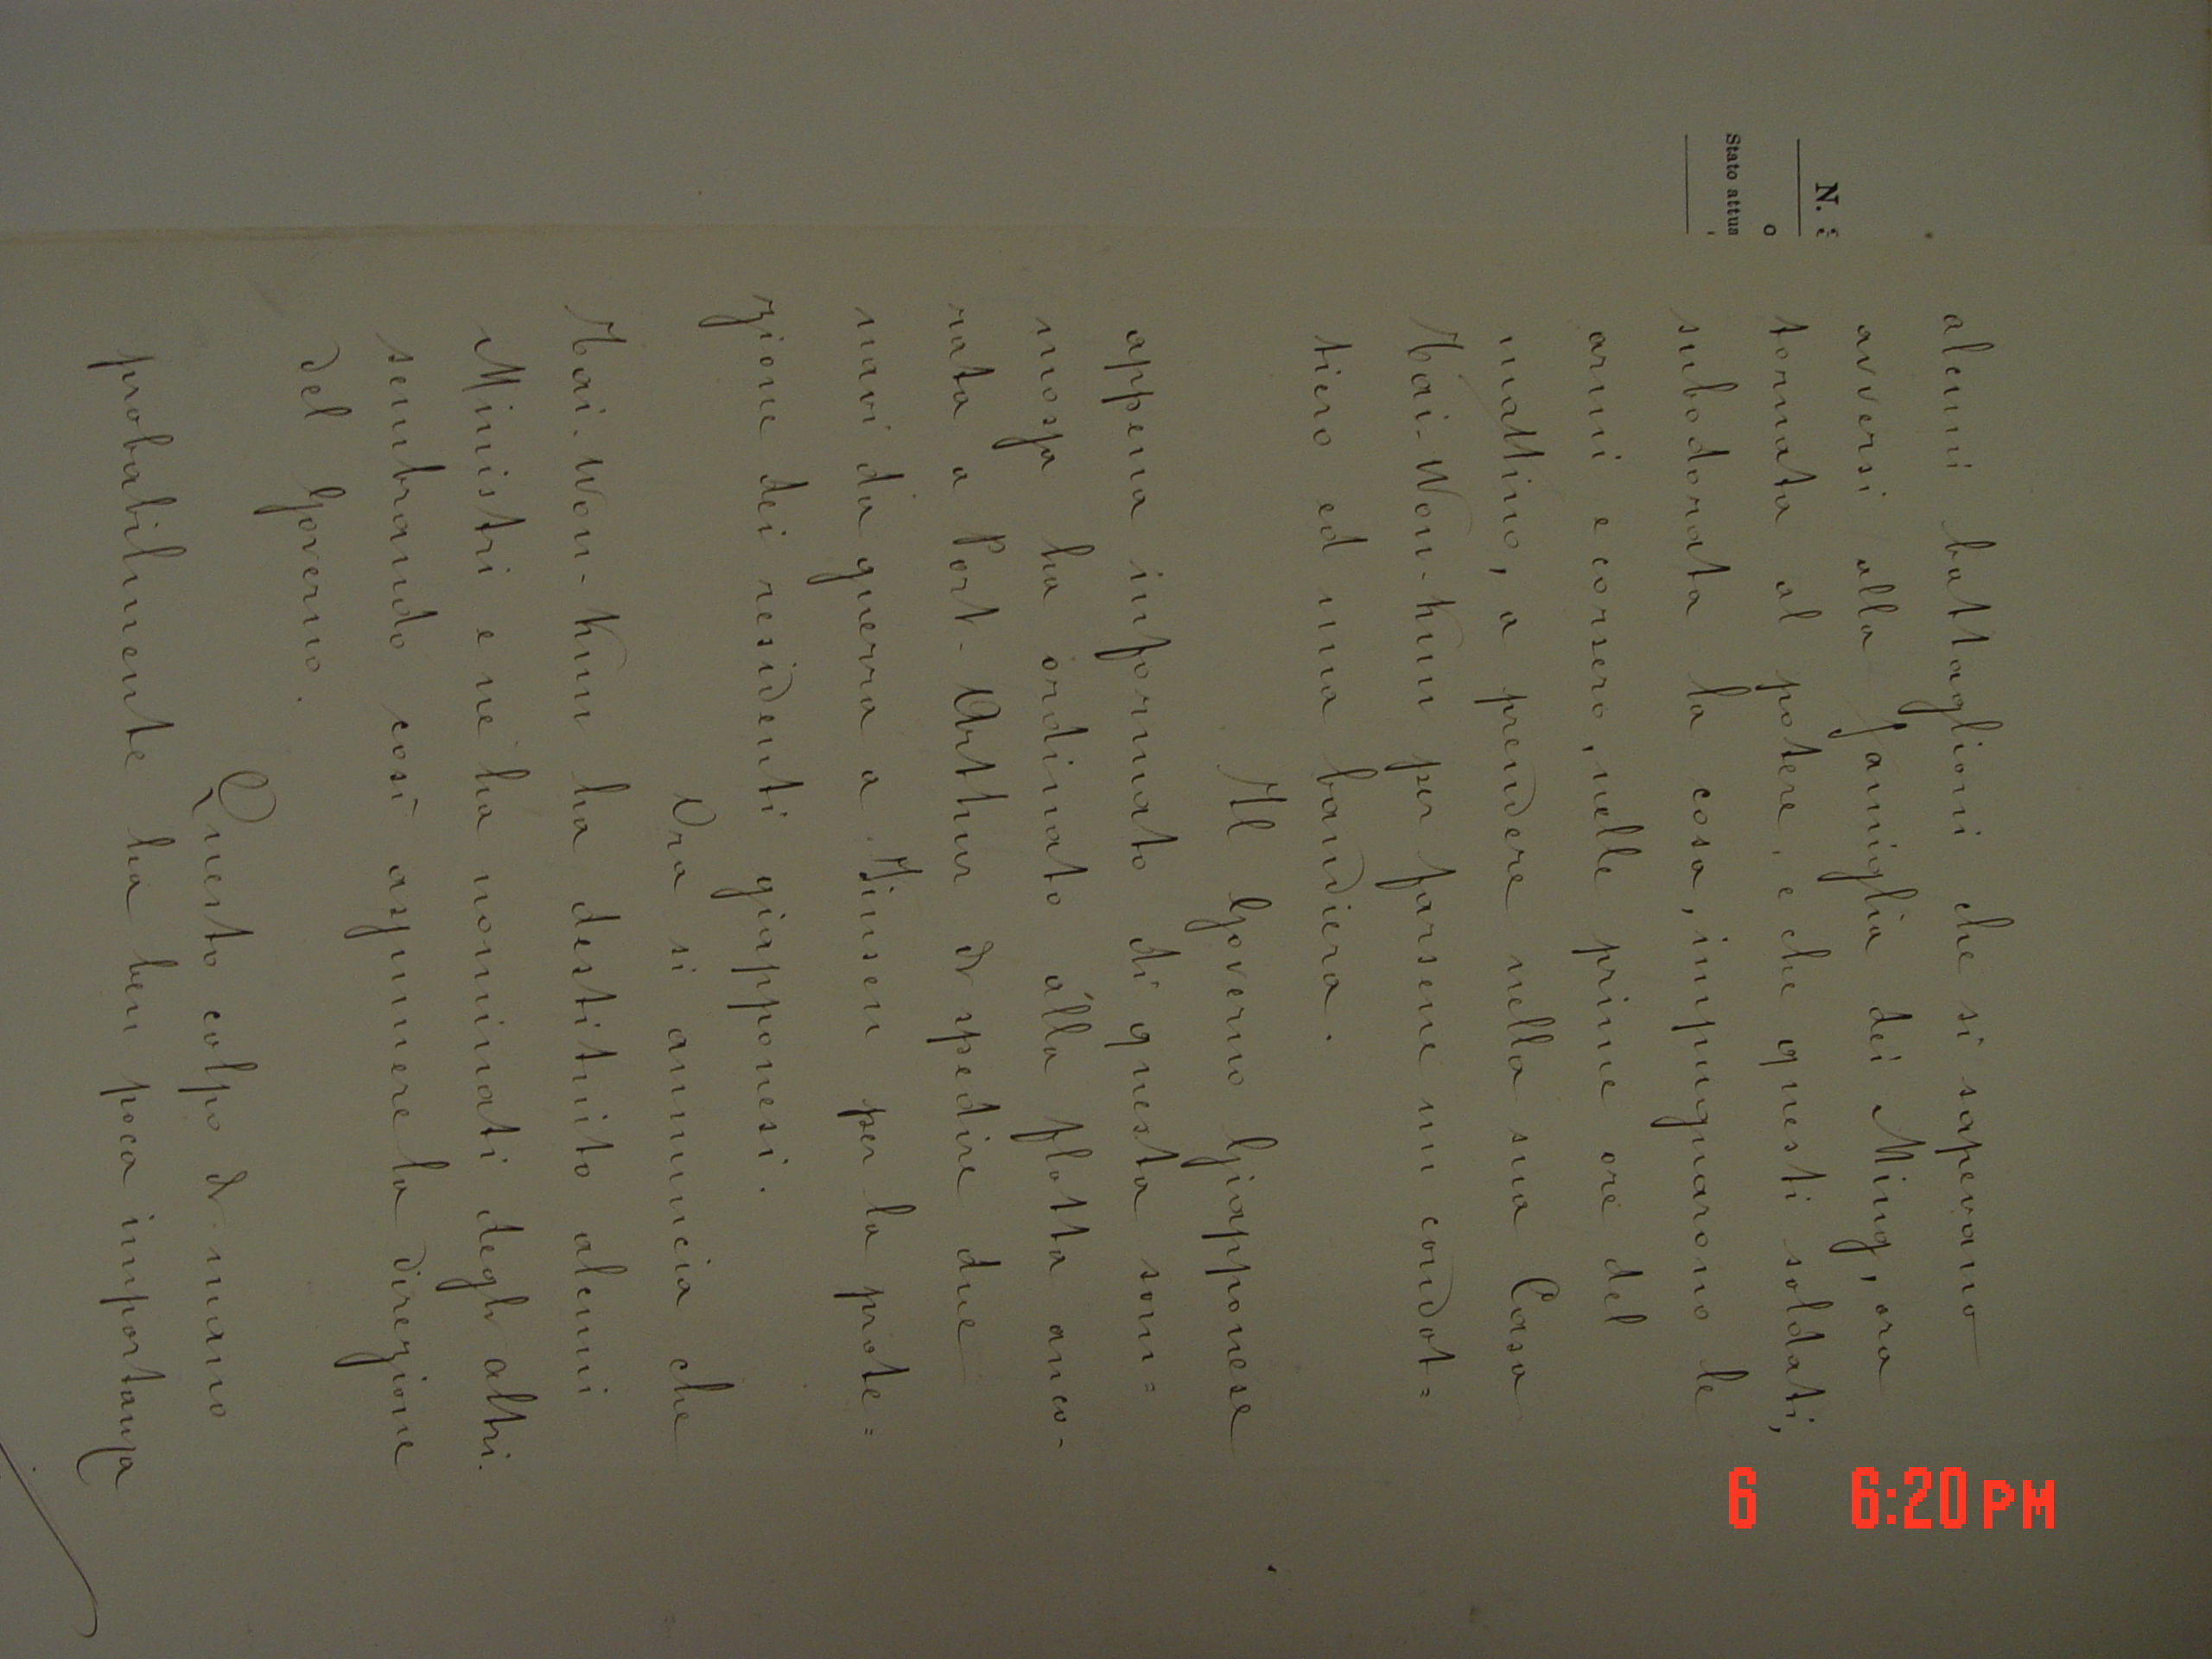 N.
Stato attua
alcuni battaglioni che si sapevano
avversi alla famiglia dei Ming, ora
tornata al potere, e che questi soldati,
subodorata la cosa, impugnarono le
armi e corsero, nelle prime ore del
mattino, a prendere nella sua Casa
Tai-Won-Kun per farsene un condot=
tiero ed una bandiera.
Il Governo Giapponese
appena informato di questa som=
mossa ha ordinato alla flotta anco-
rata a Port-Arthur di spedire due
navi da guerra a Jinsen per la prote=
zione dei residenti giapponesi.
Ora si annuncia che
Tai-Won-Kun ha destituito alcuni
Ministri e ne ha nominati degli altri.
sembrando così assumere la direzione
del Governo.
Questo colpo di mano
probabilmente ha ben poca importanza
6 6:20 PM